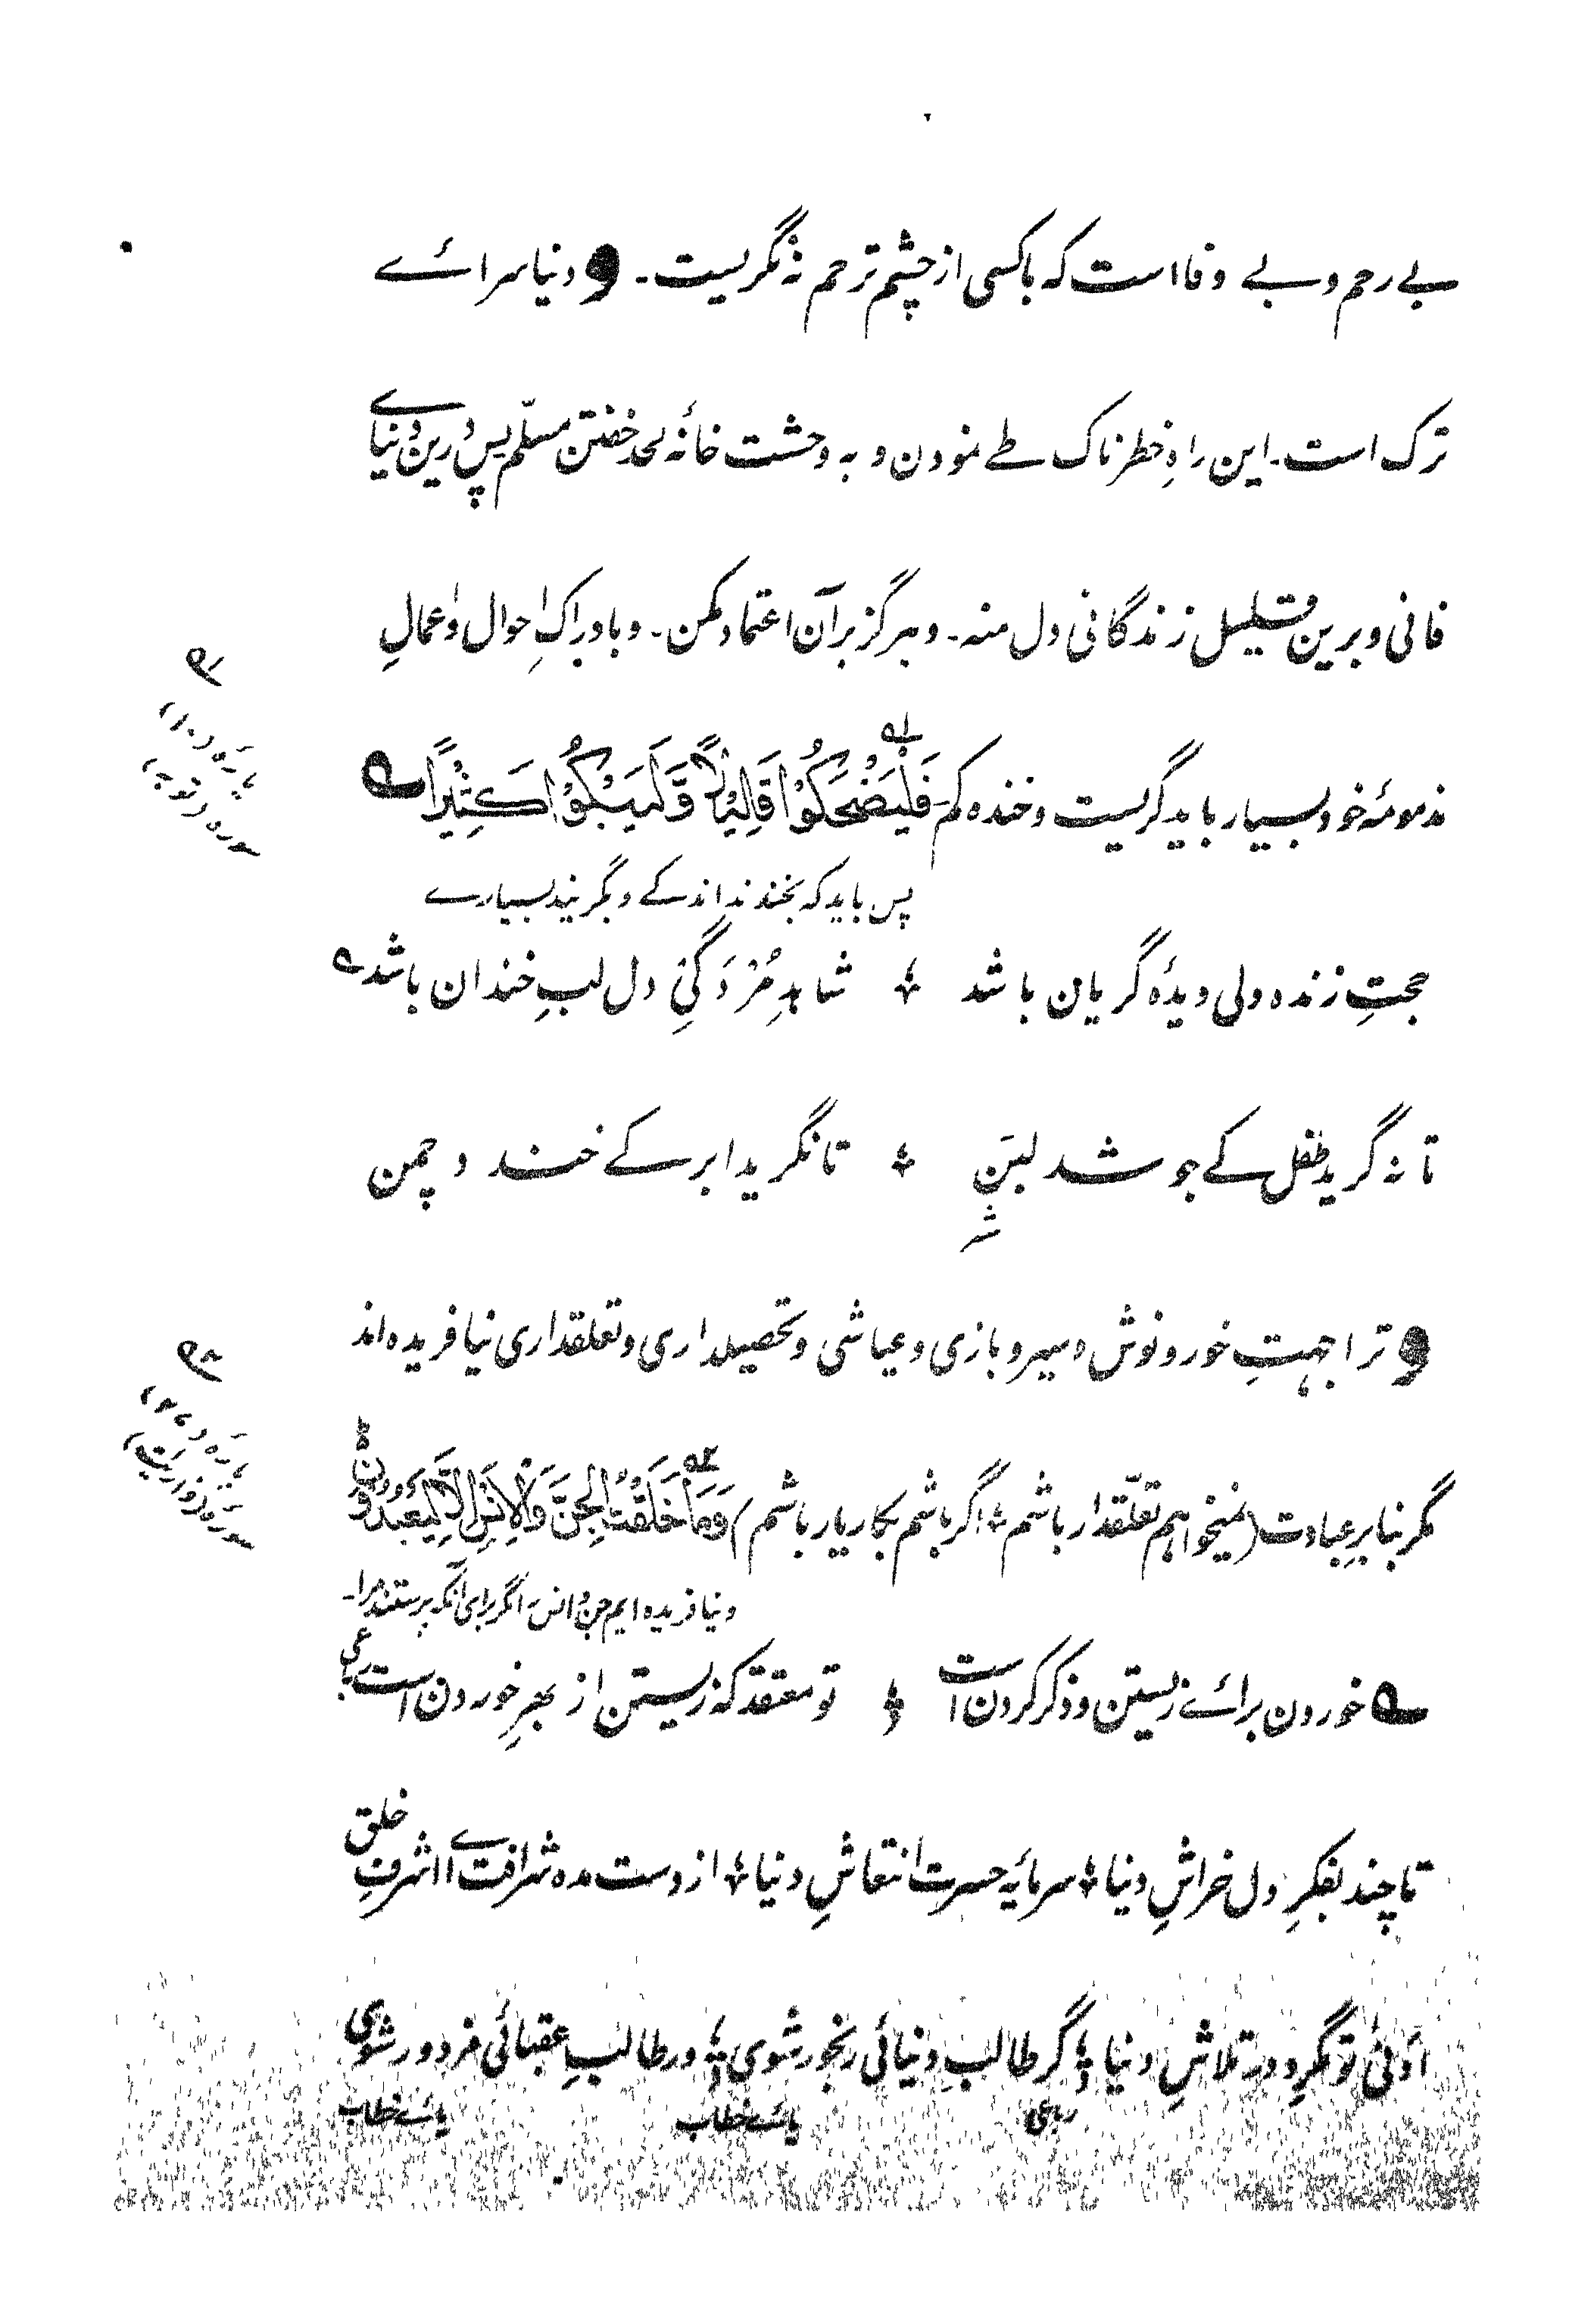 بے رحم و بے وفا است که باکسی از چشم ترحم نه نگریست ـ و دنیا سراے
ترک است ـ این راهِ خطرناک طے نمودن و به وحشت خانهٔ لحد خفتن مسلّم پس درین دنیاے
فانی و برین قلیل زندگانی دل منه ـ و هرگز بر آن اعتماد مکن ـ و بادراکِ احوال و اعمالِ
مذمومهٔ خود بسیار باید گریست و خنده کم فَلْیَضْحَکُوْا قَلِیْلًا وَّلْیَبْکُوْا کَثِیْرًا
پس باید که بخندند اندکے و بگریند بسیارے
حجتِ زنده دلی دیدهٔ گریان باشد ؛ شاهدِ مُرْدَگیِ دل لبِ خندان باشد
تا نه گرید طفل کے جوشد لبَن ؛ تا نگرید ابر کے خندد چمن
شیر
و ترا جهتِ خور و نوش و سیر و بازی و عیاشی و تحصیلداری و تعلقداری نیافریده اند
مگر بنا برِ عبادت (نمیخواهم تعلّقدار باشم ؛ اگر باشم بکار یار باشم) وَمَا خَلَقْتُ الْجِنَّ وَالْاِنْسَ اِلَّا لِیَعْبُدُوْنِ
و نیافریده ایم جن و انس را مگر برای آنکه پرستند مرا ـ
خوردن براے زیستن و ذکر کردن است ؛ تو معتقد که زیستن از بهرِ خوردن است
تا چند بفکرِ دل خراشِ دنیا ؛ سرمایهٔ حسرت انتعاشِ دنیا ؛ از دست مده شرافت اے اشرفِ خلق
تو مگرد در تلاشِ دنیا ؛ گر طالبِ دنیائی رنجور شوی ؛ ور طالبِ عقبائی مزدور شوی
رباعی یائے خطاب یائے خطاب
پاره (۱۰)
سوره توبه
پاره (۲۷)
سوره ذواریٰت